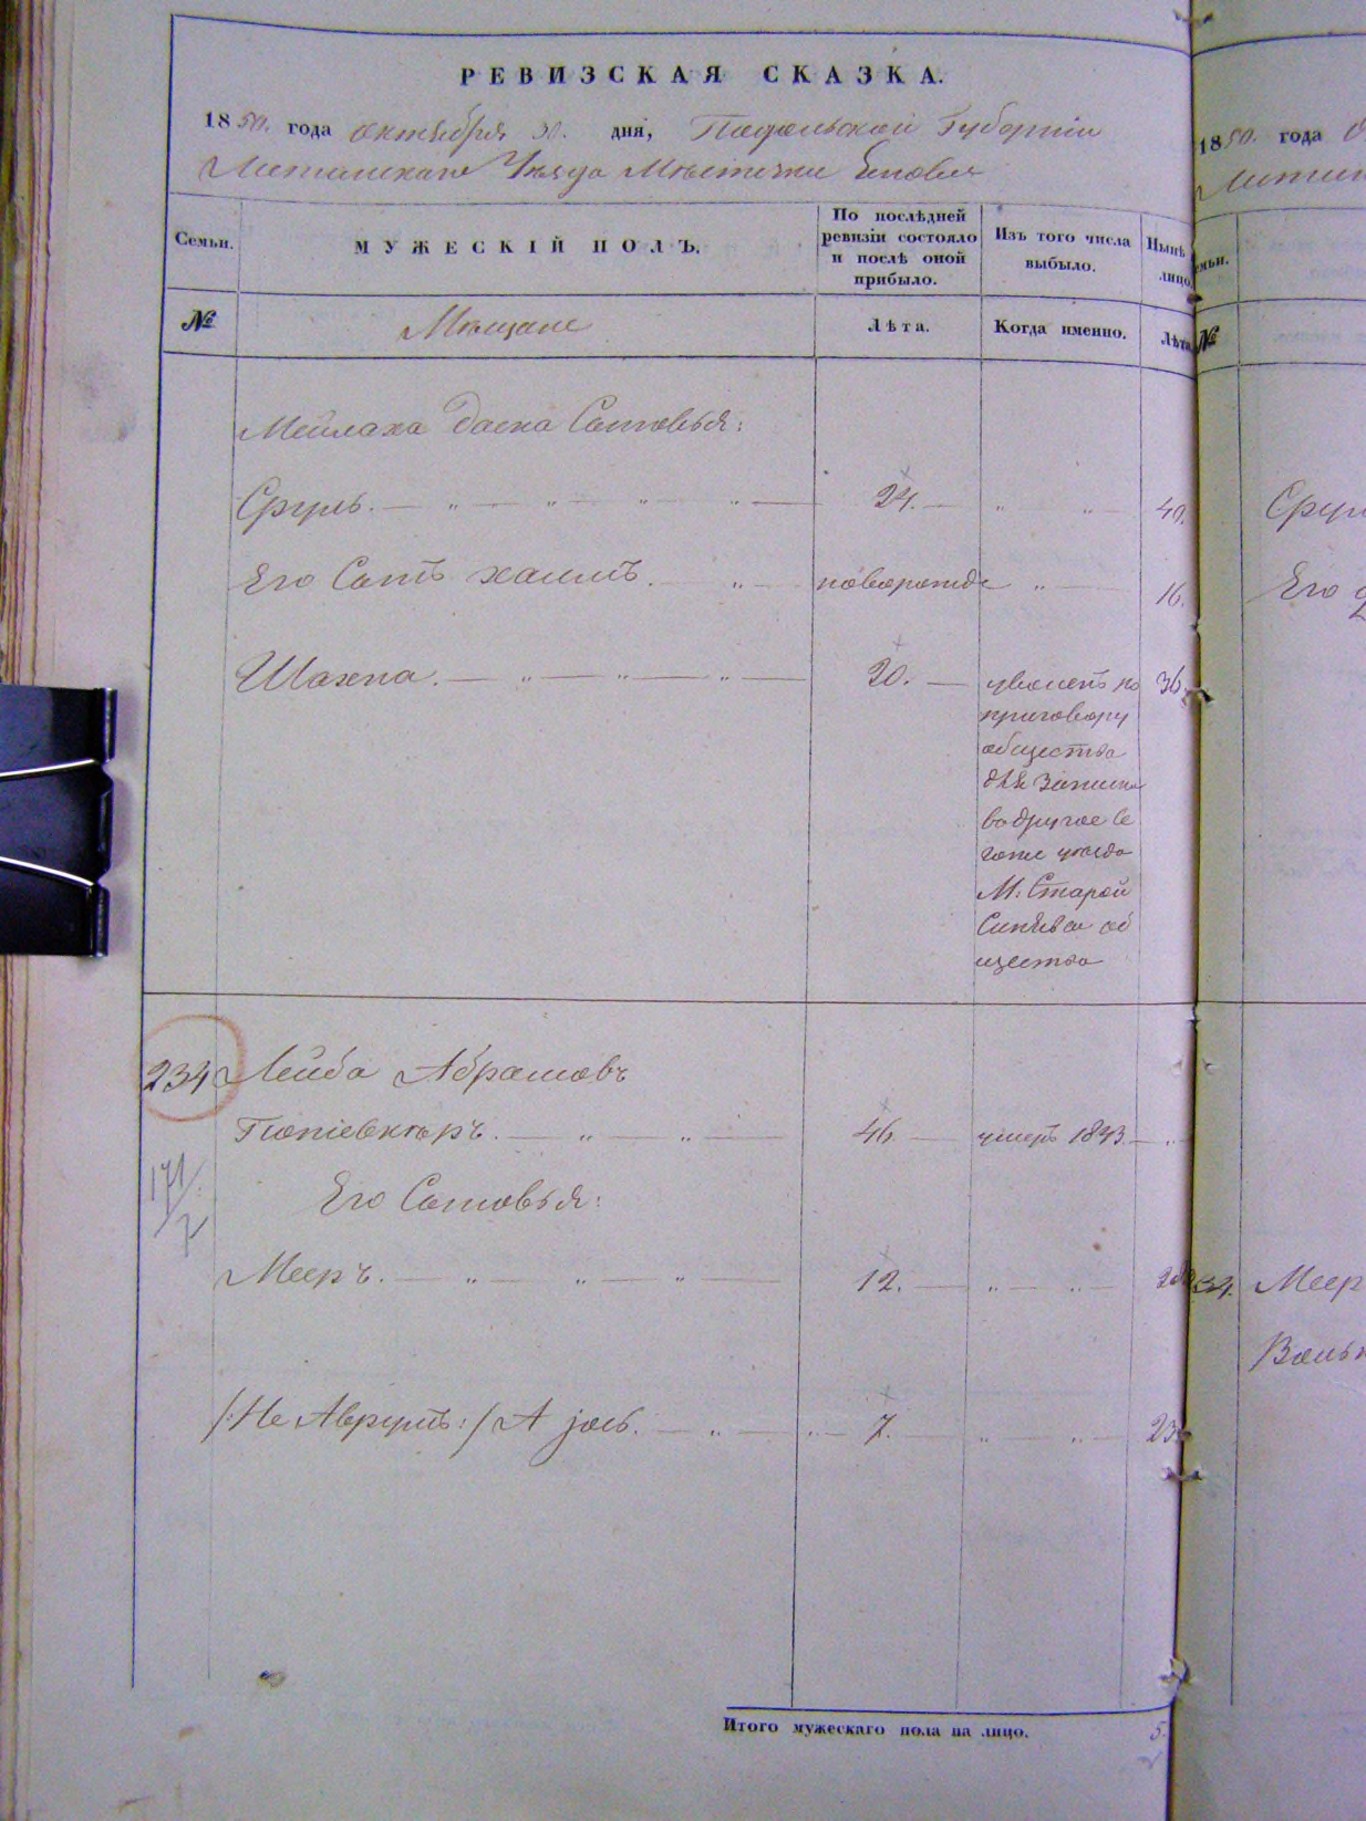 РЕВИЗСКАЯ СКАЗКА.
1850. года октября 30. дня, Подольской Губернии
Литинскаго Уѣзда Мѣстечка
Семьи.
МУЖЕСКІЙ ПОЛЪ.
По послѣдней
ревизіи состояло
и послѣ оной
прибыло.
Изъ того числа
выбыло.
Нынѣ
лицо
№
Мѣщане
Лѣта.
Когда именно.
Лѣта
Мейлаха Сыновья:
Сруль. — „ — „ — „ — „ — 24. — „ „ 40.
Его Сынъ Хаимъ. „ — новорожде „ 16.
Шахна. — „ — „ — „ — 20. — уволенъ по 36.
приговору
общества
для записки
въ другое се
гоже уѣзда
М: Старой
Синявы об
щество
234 Лейба Абрамовъ
— „ — „ — 46. — умеръ 1843. — „
171/7
Его Сыновья:
Мееръ. — „ — „ — „ — 12. — „ — „ — 28
/:Не Аврумъ:/ А Іось. — „ — „ — 7. — „ — „ — 23
Итого мужескаго пола на лицо. 5.
1850. года
Литин
емьи.
№
Срул
Его
34. Меер